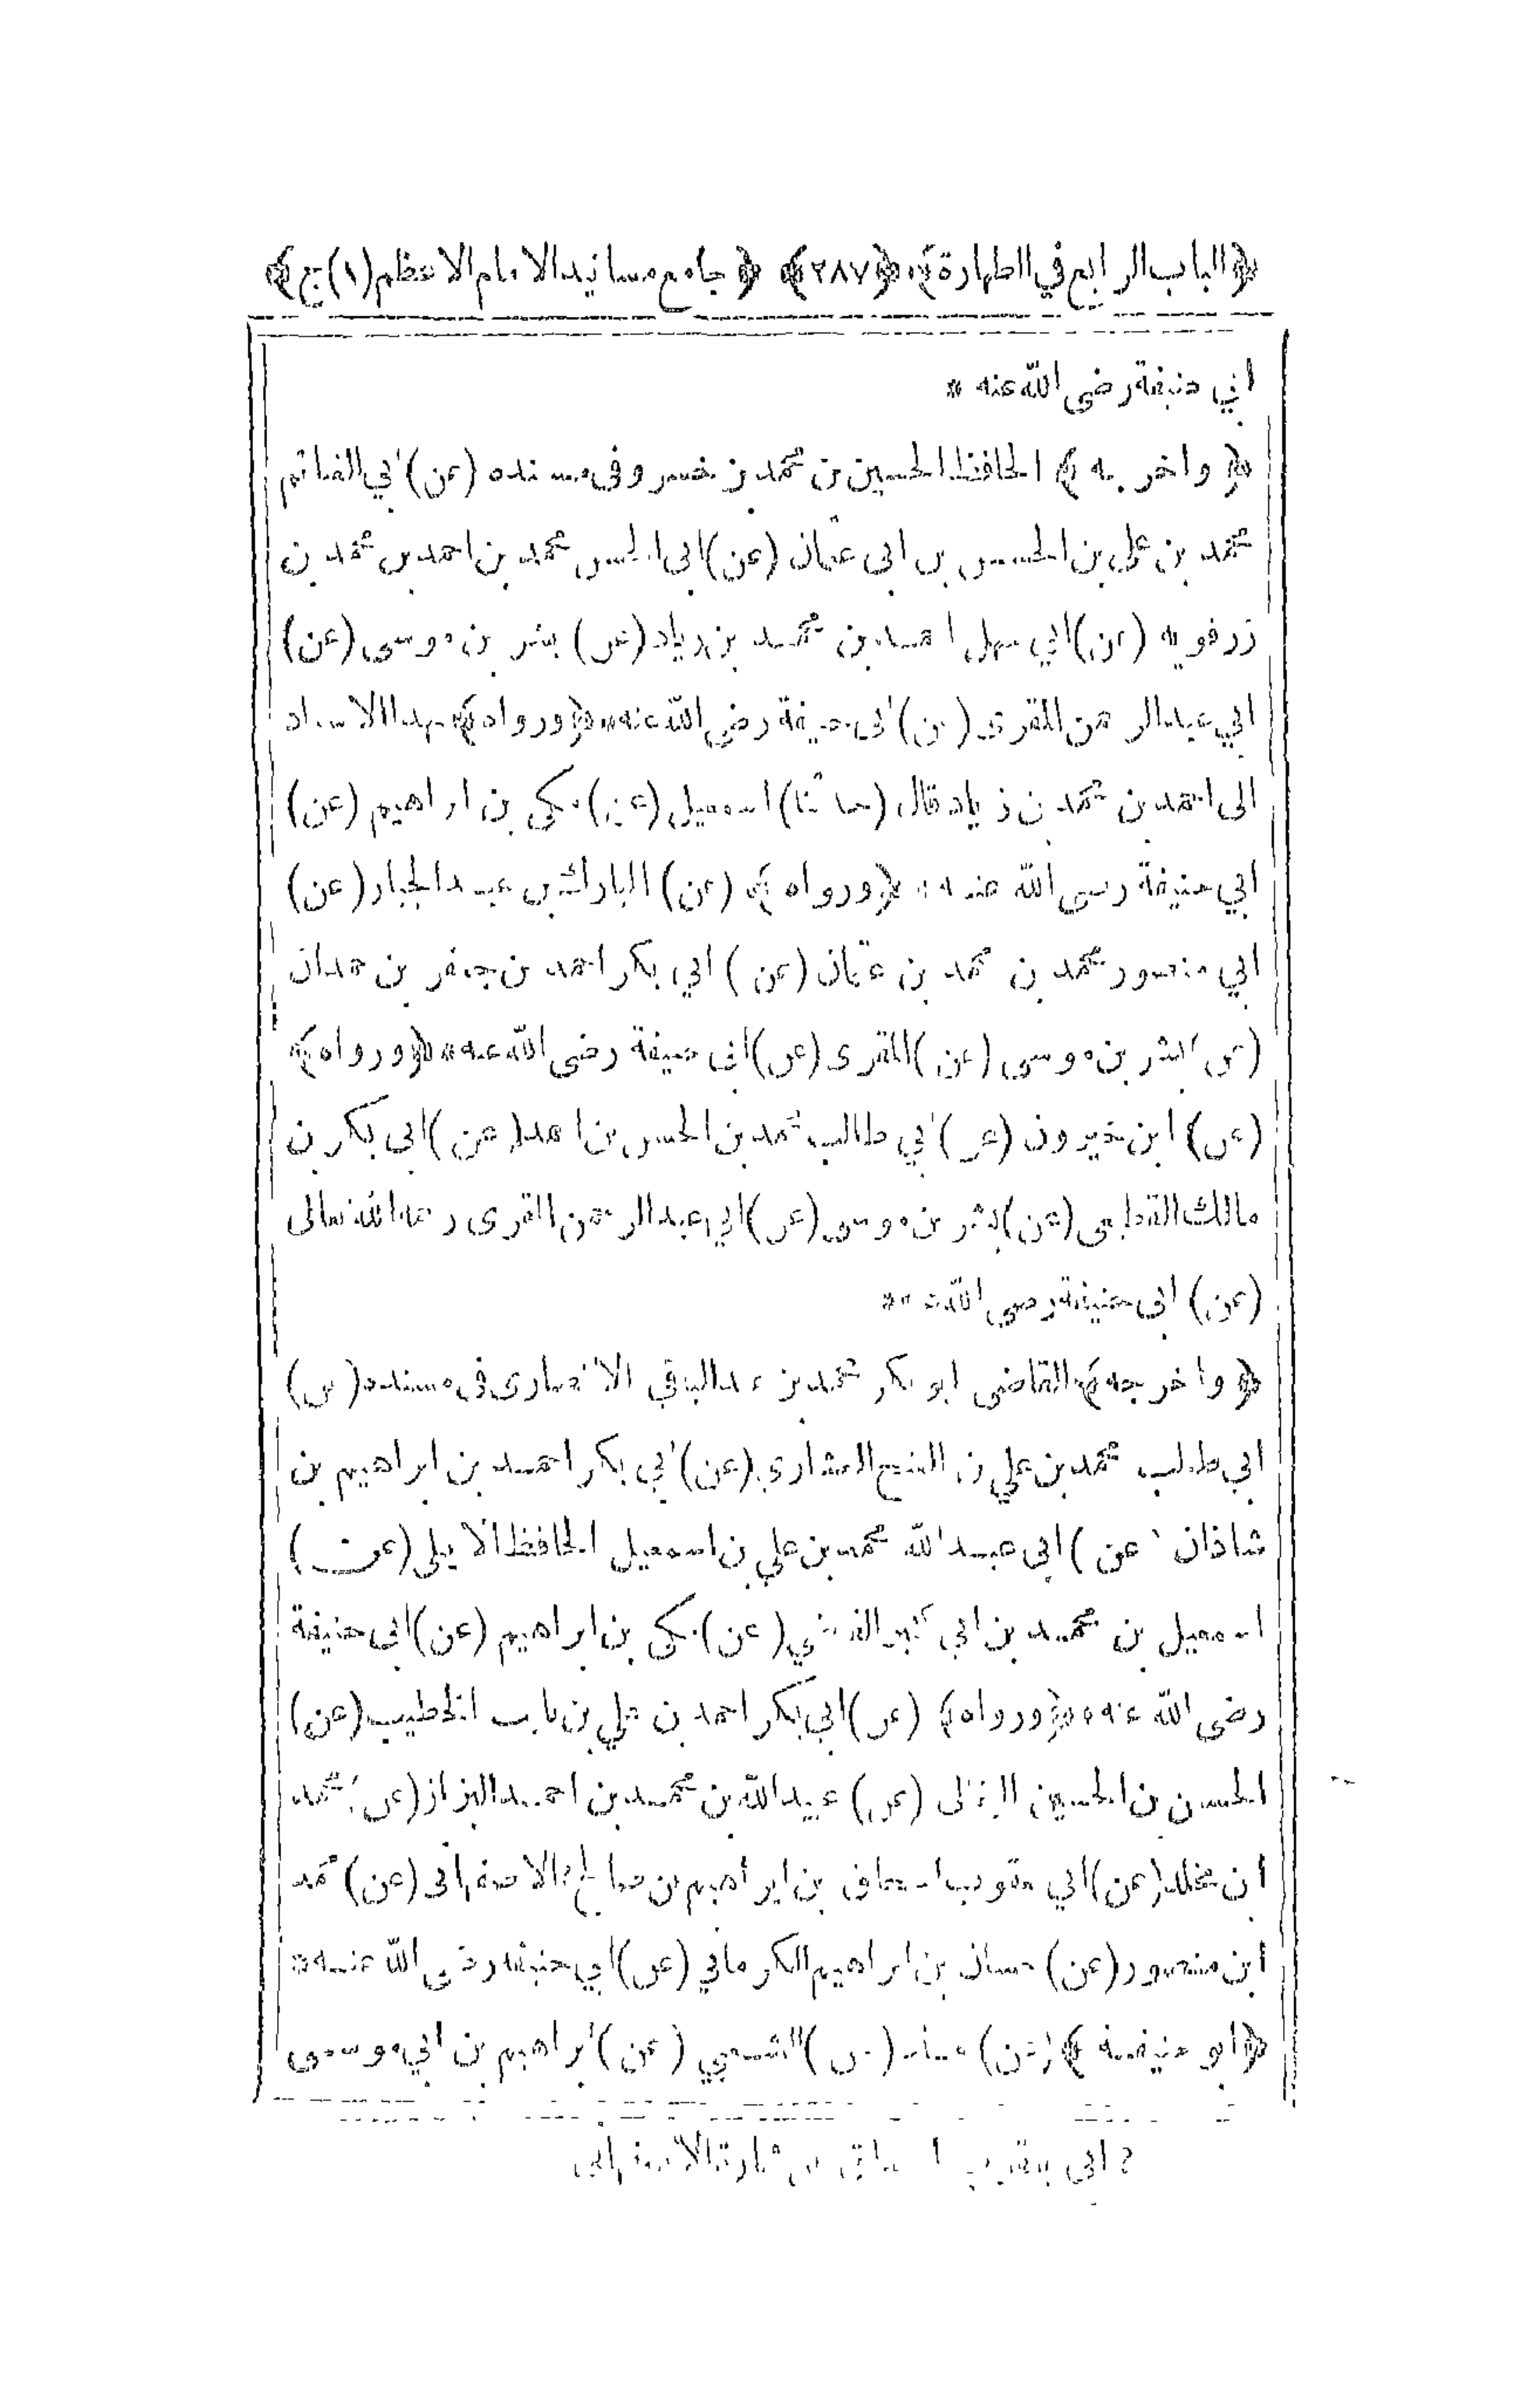 ﴿الباب الرابع في الطهارة﴾ ﴿٢٨٧﴾ ﴿جامع مسانيد الامام الاعظم (١) ج﴾
ابي حنيفة رضى الله عنه *
﴿واخرجه﴾ الحافظ الحسين بن محمد بن خسرو فى مسنده (عن) ابي الغنائم
محمد بن على بن الحسن بن ابى عثمان (عن) ابى الحسن محمد بن احمد بن محمد بن
زرقويه (عن) ابي سهل احمد بن محمد بن زياد (عن) بشر بن موسى (عن)
ابي عبد الرحمن المقرى (عن) ابى حنيفة رضى الله عنه * ﴿ورواه﴾ بهذا الاسناد
الى احمد بن محمد بن زياد قال (حدثنا) اسمعيل (عن) مكى بن ابراهيم (عن)
ابي حنيفة رضى الله عنه * ﴿ورواه﴾ (عن) المبارك بن عبد الجبار (عن)
ابي منصور محمد بن محمد بن عثمان (عن) ابي بكر احمد بن جعفر بن حمدان
(عن) بشر بن موسى (عن) المقرى (عن) ابى حنيفة رضى الله عنه * ﴿ورواه﴾
(عن) ابن خيرون (عن) ابي طالب محمد بن الحسن بن احمد (عن) ابى بكر بن
مالك القطيعى (عن) بشر بن موسى (عن) ابي عبد الرحمن المقرى رحمه الله تعالى
(عن) ابى حنيفة رضى الله عنه *
﴿واخرجه﴾ القاضى ابو بكر محمد بن عبد الباقى الانصارى فى مسنده (عن)
ابي طالب محمد بن علي بن الفتح العشاري (عن) ابي بكر احمد بن ابراهيم بن
شاذان (عن) ابى عبد الله محمد بن علي بن اسمعيل الحافظ الايلى (عن)
اسمعيل بن محمد بن ابي كثير القاضي (عن) مكى بن ابراهيم (عن) ابى حنيفة
رضى الله عنه * ﴿ورواه﴾ (عن) ابي بكر احمد بن علي بن ثابت الخطيب (عن)
الحسن بن الحسين (عن) عبيد الله بن محمد بن احمد البزاز (عن) محمد
ابن مخلد (عن) ابي يعقوب اسحاق بن ابراهيم بن صالح ٢ الاصفهانى (عن) محمد
ابن منصور (عن) حسان بن ابراهيم الكرماني (عن) ابي حنيفة رضى الله عنه *
﴿ابو حنيفة﴾ (عن) حماد (عن) الشعبي (عن) ابراهيم بن ابي موسى
٢ ابى يعقوب اسحاق بن الاصفهانى